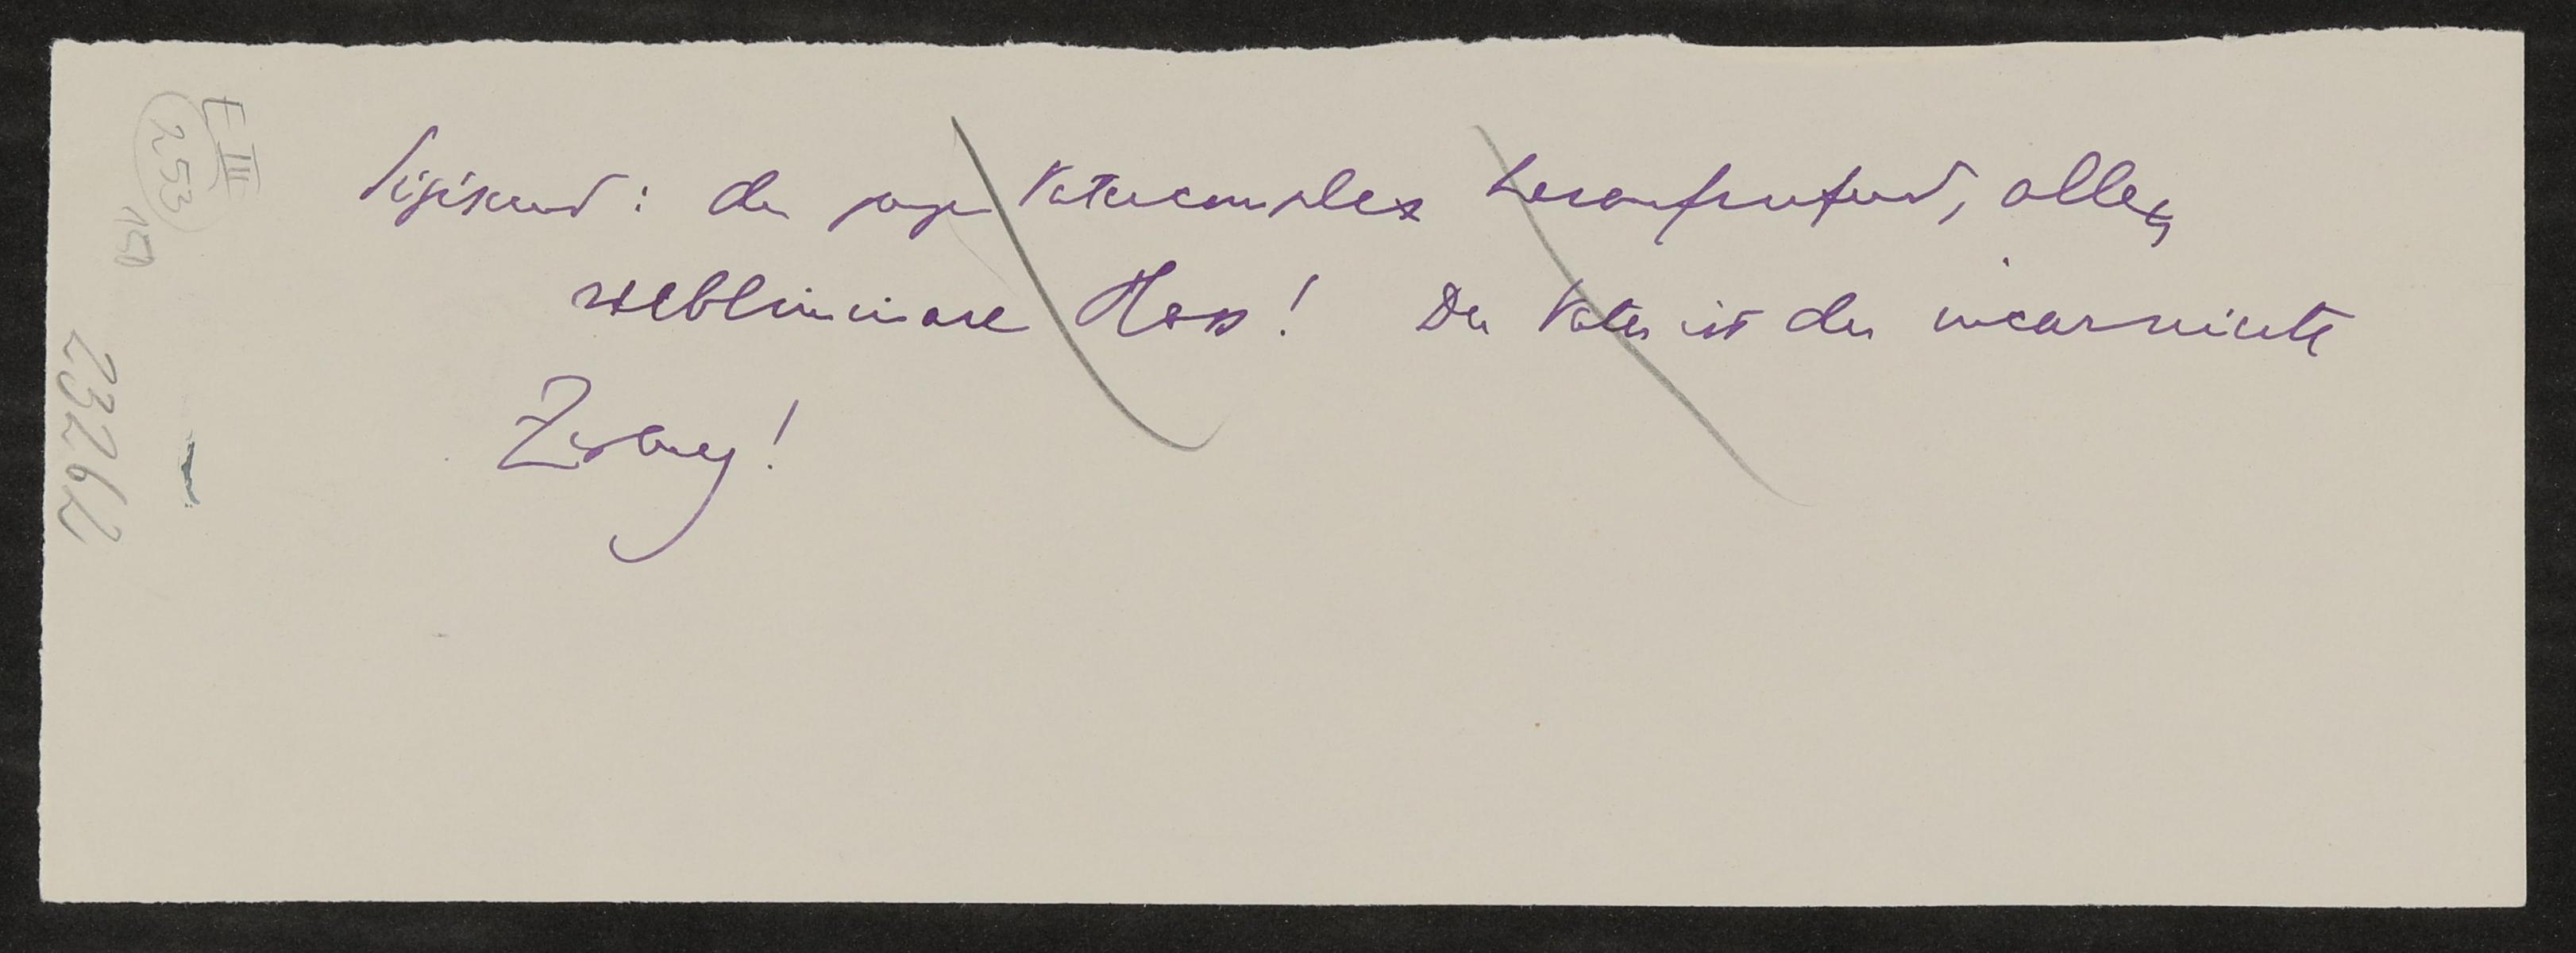 E III
253
23262
Sigismund: den ganzen Vatercomplex heraufrufend, aller
subliminare Hass! Der Vater ist der incarnierte
Zwang!